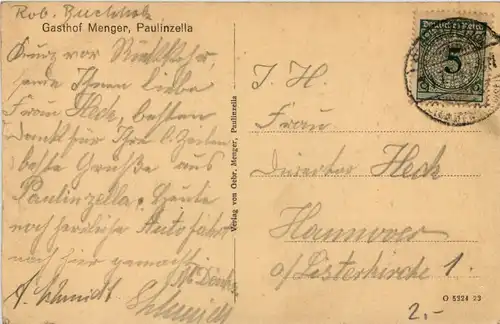 Rob. Buchholz
Gasthof Menger, Paulinzella
Kurz vor Rückkehr,
sende Ihnen liebe
Frau Hech, besten
Dank für Ihre l. Zeilen
beste Grüße aus
Paulinzella. Heute
noch herrliche Autofahrt
noch hier gemacht.
A. Schmidt
Verlag von Gebr. Menger, Paulinzella
Deutsches Reich
5
I. H.
Frau
Direktor Hech
Hannover
a/Listerkirche 1.
O 5324 23
2.-